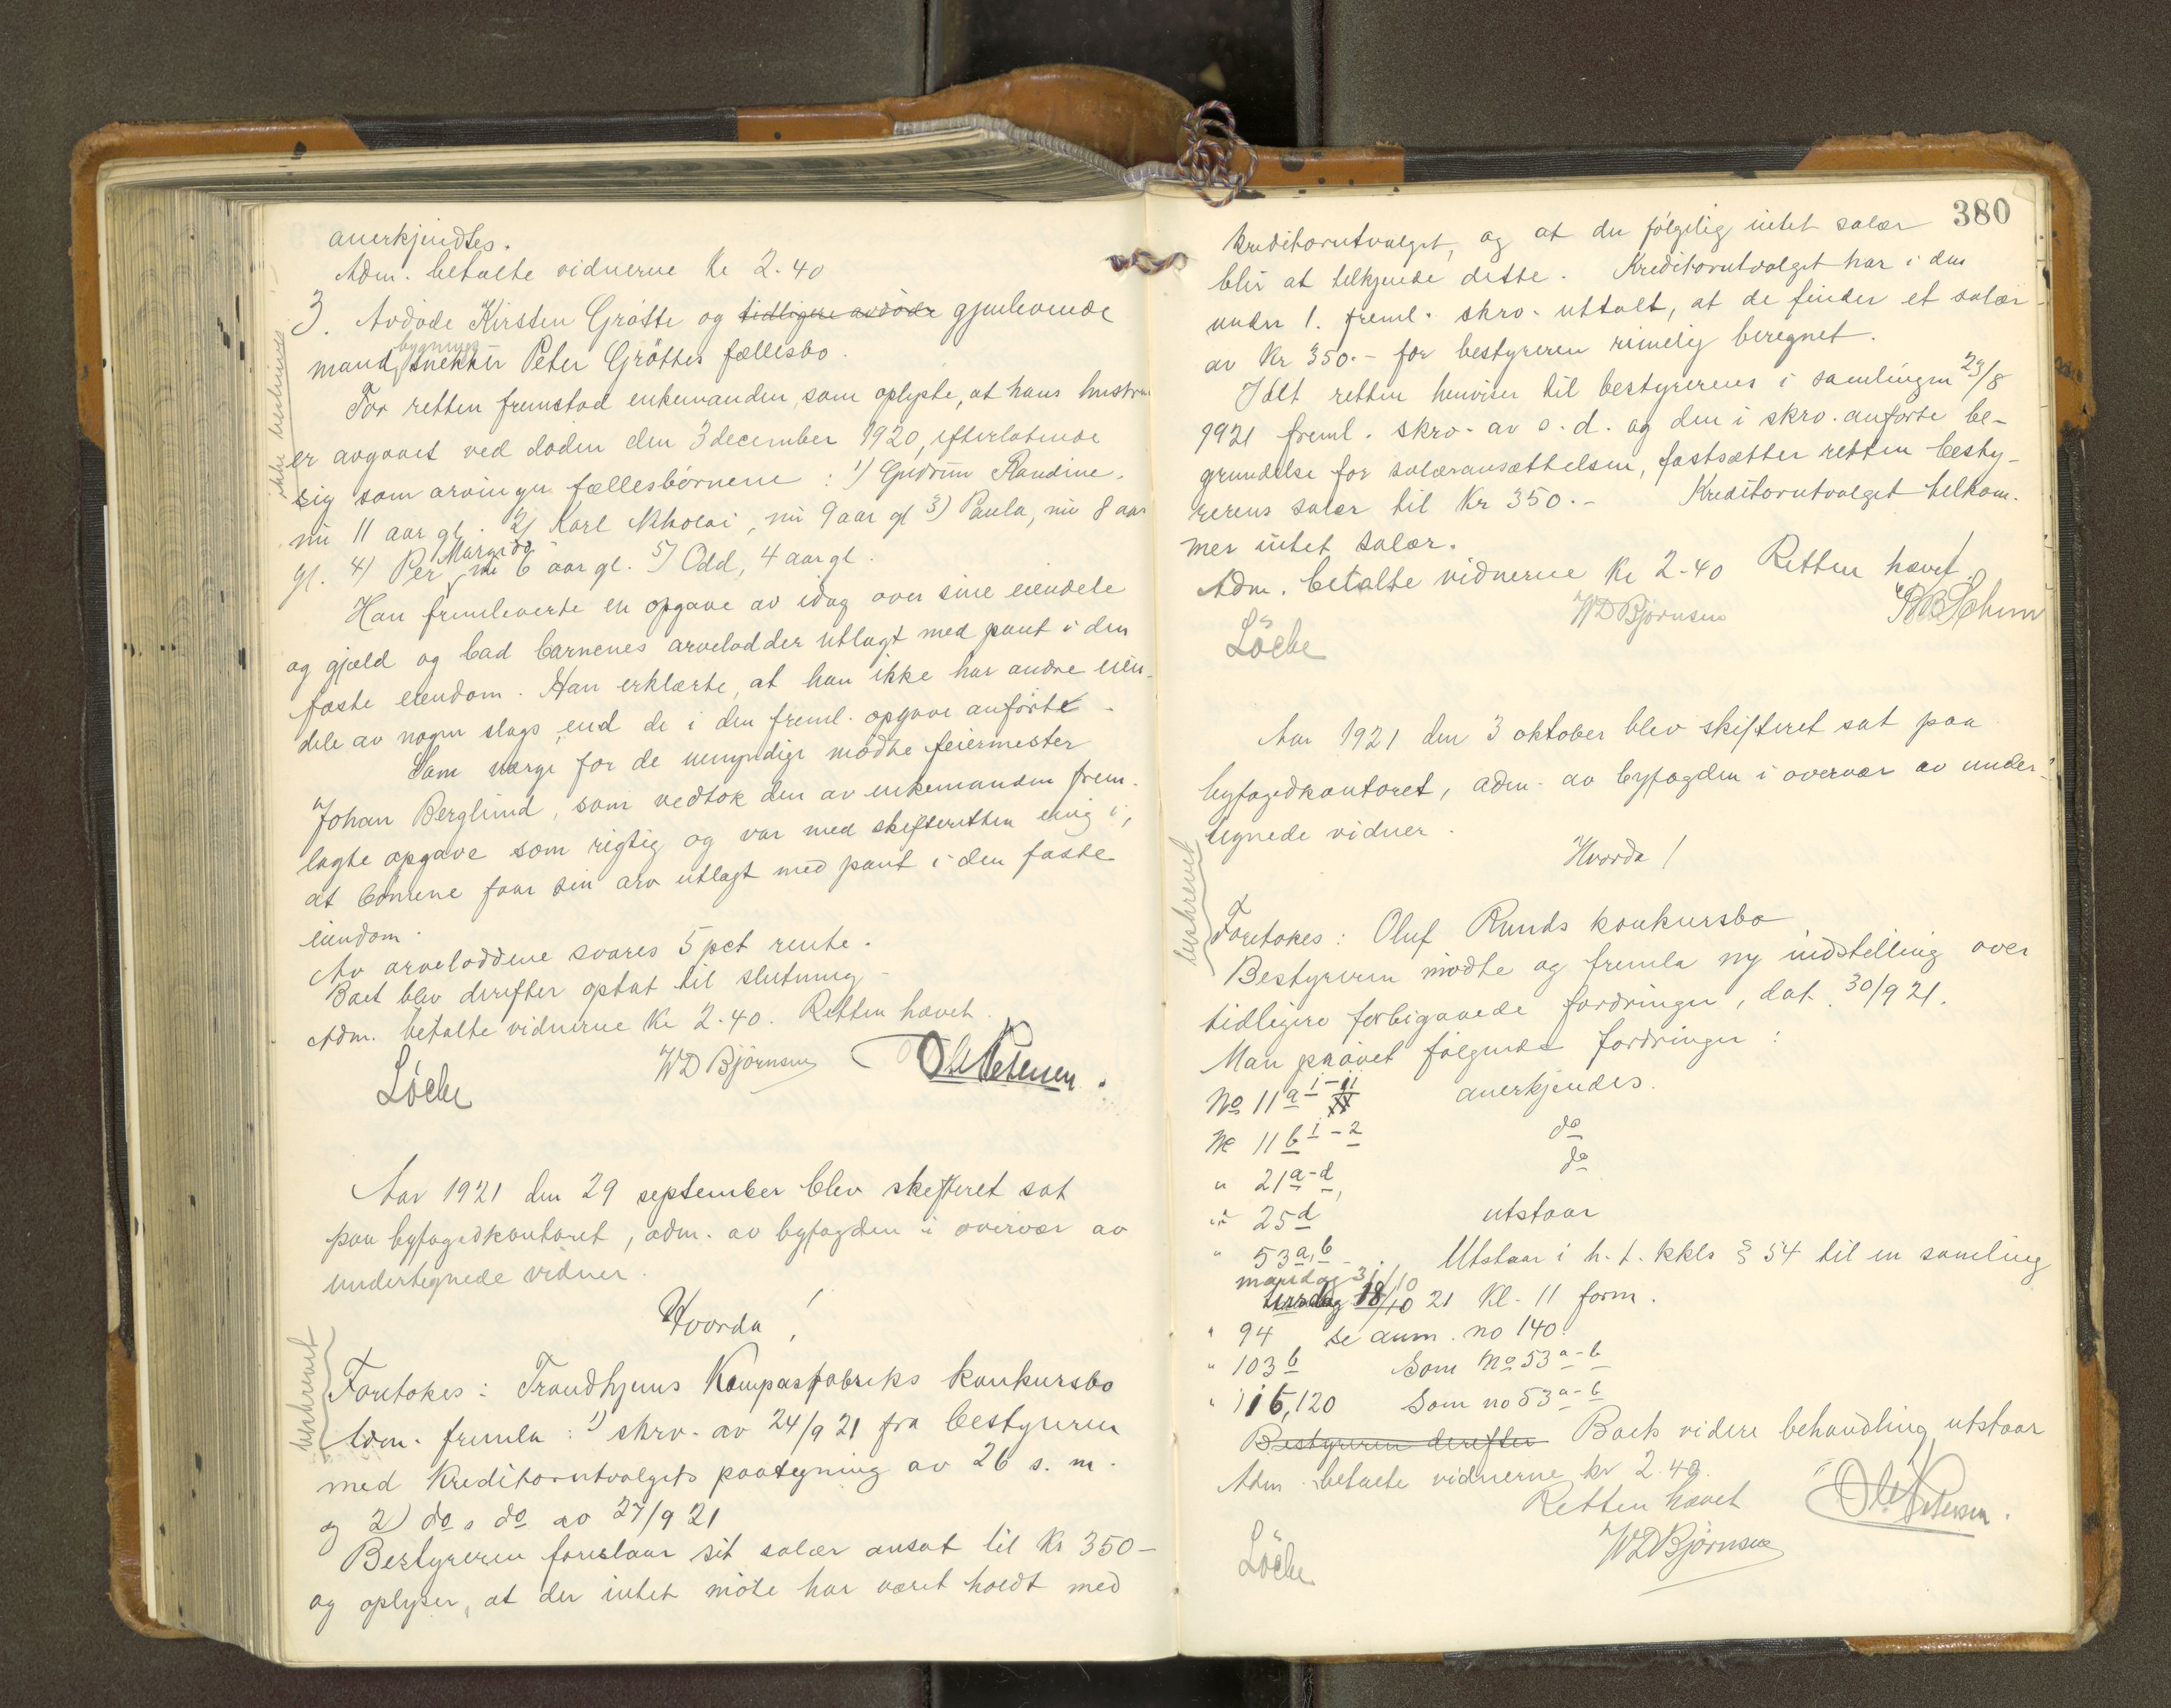 anerkjendtes.
Adm. betalte vidnerne Kr 2.40
3. Avdøde Kirsten Gröttes og tidligere avdøde gjenlevende
mand, bygnings-snekker Peter Gröttes fællesbo.
ikke beskrevet
For retten fremstod enkemanden, som oplyste, at hans hustru
er avgaaet ved døden den 3 december 1920, efterlatende
sig som arvinger fællesbørnene: 1) Gudrun Randine,
nu 11 aar gl. 2) Karl Nikolai, nu 9 aar gl 3) Paula, nu 8 aar
gl. 4) Per nu 6 aar gl. 5) Odd, 4 aar gl.
Han fremleverte en opgave av idag over sine eiendele
og gjæld og bad barnenes arvelodder utlagt med pant i den
faste eiendom. Han erklærte, at han ikke har andre eien-
dele av nogen slags end de i den freml. opgave anførte.
Som verge for de umyndige mødte feiermester
Johan Berglund, som vedtok den av enkemanden frem-
lagte opgave som rigtig og var med skifteretten enig i,
at børnene faar sin arv utlagt med pant i den faste
eiendom.
Av arveloddene svares 5 pct rente.
Boet blev derefter optat til slutning.
Adm. betalte vidnerne Kr 2.40. Retten hævet.
Löche WD Björnsen Ole Petersen.
Aar 1921 den 29 september blev skifteret sat
paa byfogedkontoret, adm. av byfogden i overvær av
undertegnede vidner.
Hvorda!
beskrevet
Foretokes: Trondhjems Kompasfabriks konkursbo
Adm. fremla: 1) skrv. av 24/9 21 fra bestyreren
med Kreditorutvalgets paategning av 26 s. m.
og 2) do s do av 27/9 21
Bestyreren foreslaar sit salær ansat til Kr 350-
og oplyser, at der intet møte har været holdt med
380
kreditorutvalget, og at der følgelig intet salær
blir at tilkjende dette. Kreditorutvalget har i den
under 1. freml. skrv. uttalt, at de finder et salær
av Kr 350.- for bestyreren rimelig beregnet.
Idet retten henviser til bestyrerens i samlingen 23/8
1921 freml. skrv. av s. d. og den i skrv. anførte be-
grundelse for salæransættelsen, fastsætter retten besty-
rerens salær til Kr 350.- Kreditorutvalget tilkom-
mer intet salær.
Adm. betalte vidnerne Kr 2.40 Retten hævet.
Löche WD Björnsen
Aar 1921 den 3 oktober blev skifteret sat paa
byfogedkontoret, adm. av byfogden i overvær av under-
tegnede vidner.
Hvorda!
beskrevet
Foretokes: Oluf Runds konkursbo
Bestyreren mødte og fremla ny indstilling over
tidligere forbigaaede fordringer, dat. 30/9 21.
Man prøvet følgende fordringer:
No 11 a i-ii anerkjendes.
No 11 b 1-2 do
" 21 a-d, do
" 25 d utstaar
" 53 a, b. Utstaar i h. t. kkls § 54 til en samling
mandag 31/10
tirsdag 18/10 21 Kl. 11 form.
" 94 se anm. no 140.
" 103 b Som No 53 a-b
" 116, 120 Som no 53 a-b
Bestyreren derefter Boets videre behandling utstaar
Adm. betalte vidnerne kr 2.40.
Retten hævet
Löche WD Björnsen Ole Petersen.